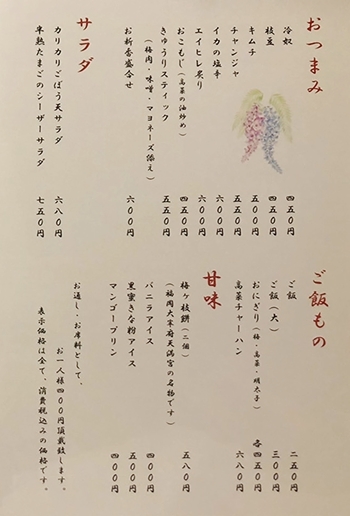 おつまみ
冷奴 四五〇円
枝豆 四五〇円
キムチ 五五〇円
チャンジャ 五五〇円
イカの塩辛 六〇〇円
エイヒレ炙り 六〇〇円
おこもじ（高菜の油炒め） 四五〇円
きゅうりスティック 五五〇円
（梅肉・味噌・マヨネーズ添え）
お新香盛合せ 六〇〇円
サラダ
カリカリごぼう天サラダ 六八〇円
半熟たまごのシーザーサラダ 七五〇円
ご飯もの
ご飯 二五〇円
ご飯（大） 三〇〇円
おにぎり（梅・高菜・明太子） 各四五〇円
高菜チャーハン 六八〇円
甘味
梅ヶ枝餅（二個） 五八〇円
（福岡大宰府天満宮の名物です）
バニラアイス 四〇〇円
黒蜜きな粉アイス 五〇〇円
マンゴープリン 四〇〇円
お通し・お席料として、
お一人様四〇〇円頂戴致します。
表示価格は全て、消費税込みの価格です。